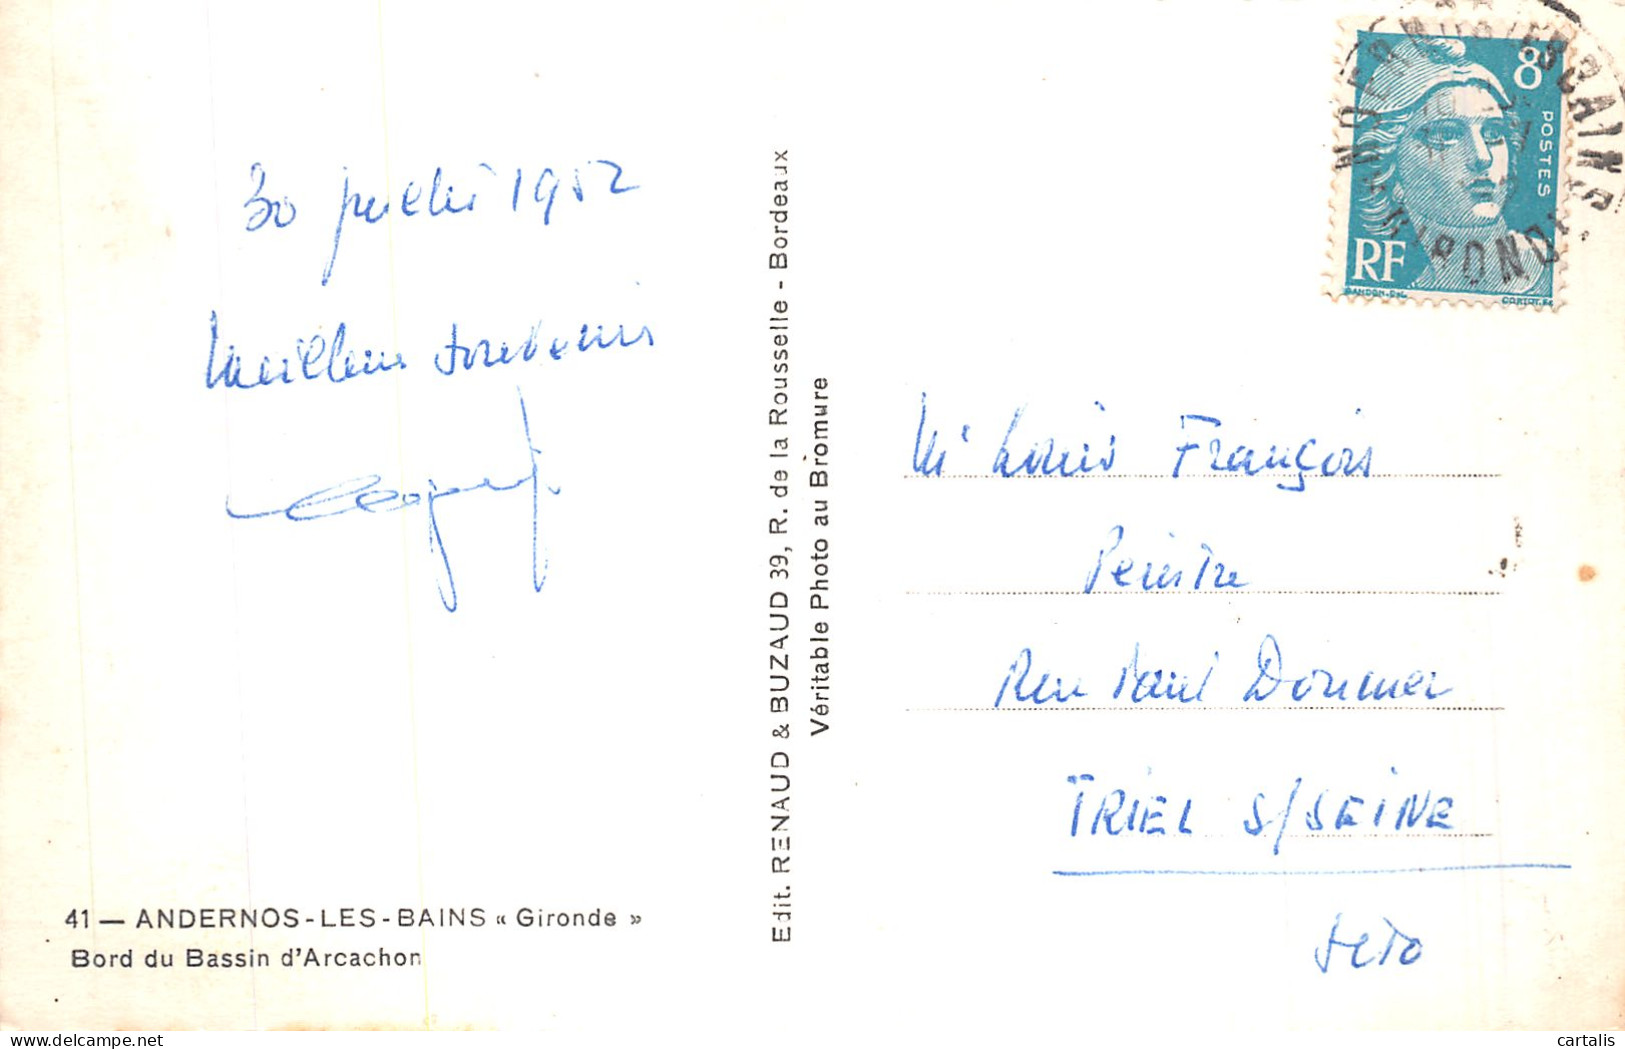 30 juillet 1952
Meilleurs souvenirs
41 — ANDERNOS-LES-BAINS « Gironde »
Bord du Bassin d'Arcachon
Edit. RENAUD & BUZAUD 39, R. de la Rousselle - Bordeaux
Véritable Photo au Bromure
8F
POSTES
RF
GANDON.DEL
CORTOT.SC
ANDERNOS-LES-BAINS
GIRONDE
Mr Louis François
Peintre
Rue Paul Doumer
TRIEL S/SEINE
S et O
cartalis